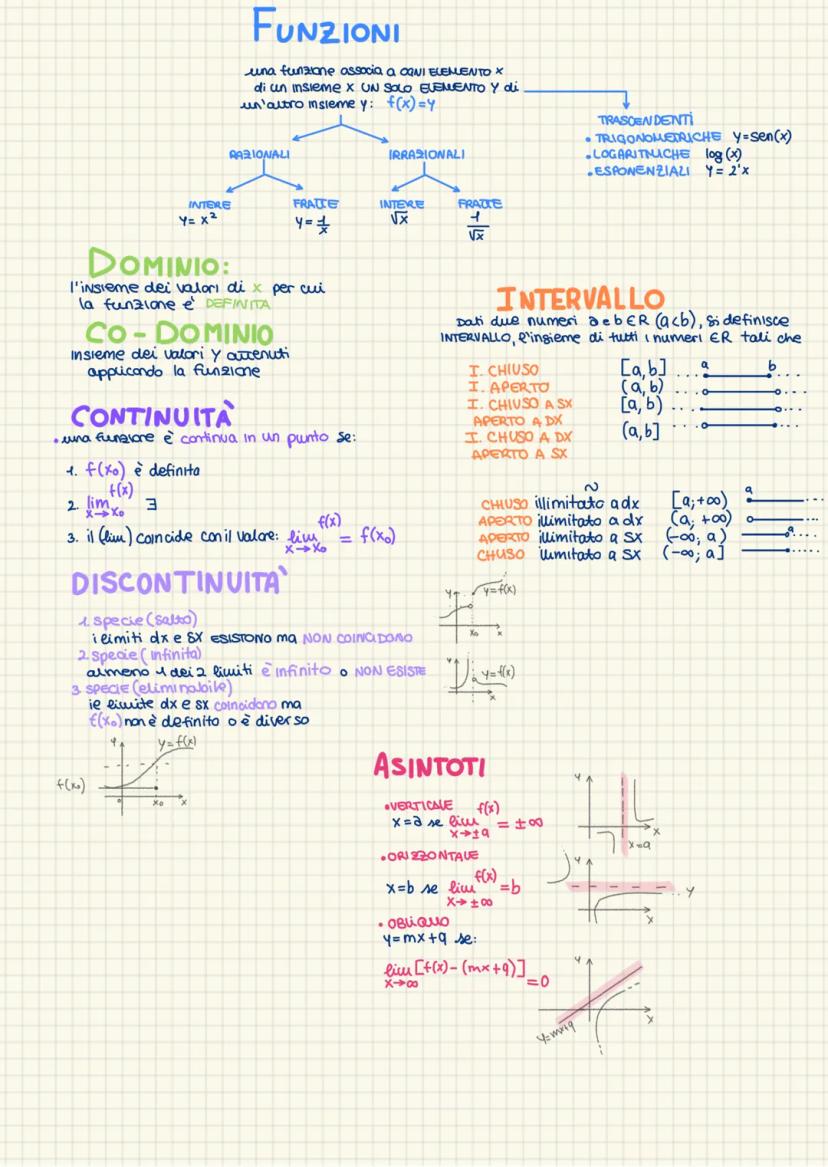 FUNZIONI
una funzione associa a OGNI ELEMENTO x
di un insieme x UN SOLO ELEMENTO Y di
un'altro insieme y: f(x)=y
TRASCENDENTI
• TRIGONOMETRICHE y=sen(x)
• LOGARITMICHE log(x)
• ESPONENZIALI y=2^x
RAZIONALI IRRAZIONALI
INTERE FRATTE INTERE FRATTE
y=x² y=1/x √x 1/√x
DOMINIO:
l'insieme dei valori di x per cui
la funzione e' DEFINITA
CO-DOMINIO
insieme dei valori Y ottenuti
applicando la funzione
INTERVALLO
Dati due numeri a e b ∈R (a<b), si definisce
INTERVALLO, l'insieme di tutti i numeri ∈R tali che
I. CHIUSO [a,b] ... a b ...
I. APERTO (a,b) ... ...
I. CHIUSO A SX [a,b) ... ...
APERTO A DX
I. CHIUSO A DX (a,b] ...
APERTO A SX
CHIUSO illimitato a dx [a;+∞) a ...
APERTO illimitato a dx (a;+∞) ...
APERTO illimitato a SX (-∞; a) a ...
CHIUSO illimitato a SX (-∞; a] ...
CONTINUITÀ
• una funzione è continua in un punto se:
1. f(x₀) è definita
2. lim x→x₀ f(x) ∃
3. il (lim) coincide con il valore: lim x→x₀ f(x) = f(x₀)
DISCONTINUITA'
1. specie (salto)
i limiti dx e sx ESISTONO ma NON COINCIDONO
2 specie (infinita)
almeno 1 dei 2 limiti è infinito o NON ESISTE
3 SPECIE (eliminabile)
ie limite dx e sx coincidono ma
f(x₀) non è definito o è diverso
y y=f(x)
x₀ x
y y=f(x)
x
y y=f(x)
f(x₀)
0 x₀ x
ASINTOTI
• VERTICALE
x=a se lim x→±a f(x) = ±∞
y
x
x=a
• ORIZZONTALE
x=b se lim x→±∞ f(x) =b
y
y
x
• OBLIQUO
y=mx+q se:
lim x→∞ [f(x)-(mx+q)] =0
y
x
y=mx+q